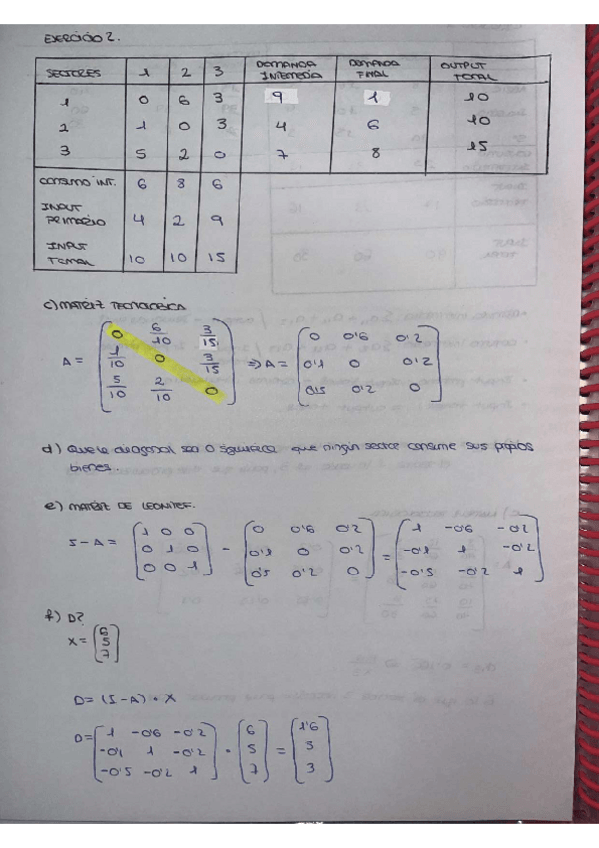 EJERCICIO 2.
SECTORES 1 2 3 DEMANDA INTEMEDIA DEMANDA FINAL OUTPUT TOTAL
1 0 6 3 9 1 10
2 1 0 3 4 6 10
3 5 2 0 7 8 15
CONSUMO INT. 6 8 6
INPUT PRIMARIO 4 2 9
INPUT TOTAL 10 10 15
c) MATRIZ TECNOLÓGICA
A = ( 0 6/10 3/15 ) => A = ( 0 0'6 0'2 )
( 1/10 0 3/15 ) ( 0'1 0 0'2 )
( 5/10 2/10 0 ) ( 0'5 0'2 0 )
d) Que la diagonal sea 0 significa que ningún sector consume sus propios
bienes.
e) MATRIZ DE LEONTIEF.
I - A = ( 1 0 0 ) - ( 0 0'6 0'2 ) = ( 1 -0'6 -0'2 )
( 0 1 0 ) ( 0'1 0 0'2 ) ( -0'1 1 -0'2 )
( 0 0 1 ) ( 0'5 0'2 0 ) ( -0'5 -0'2 1 )
f) D?
X = ( 6 5 7 )
D = (I - A) · X
D = ( 1 -0'6 -0'2 ) · ( 6 ) = ( 1'6 )
( -0'1 1 -0'2 ) ( 5 ) ( 3 )
( -0'5 -0'2 1 ) ( 7 ) ( 3 )